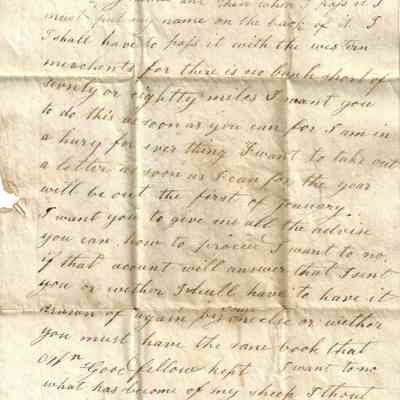 name and then when I pass it I
must put my name on the back of it. I
I shall have to pass it with the western
merchants for there is no bank short of
seventy or eightty miles I want you
to do this as soon as you can for I am in
a hury for ever thing I want to take out
a letter as soon as I can for the year
will be out the first of january.
I want you to give me all the advise
you can how to procied I want to no
if that acount will answer that I sent
you or wether I shall have to have it
drawn of again by some one else or wether
you must have the same book that
Mr Good fellow kept I want to no
what has become of my sheep I thout